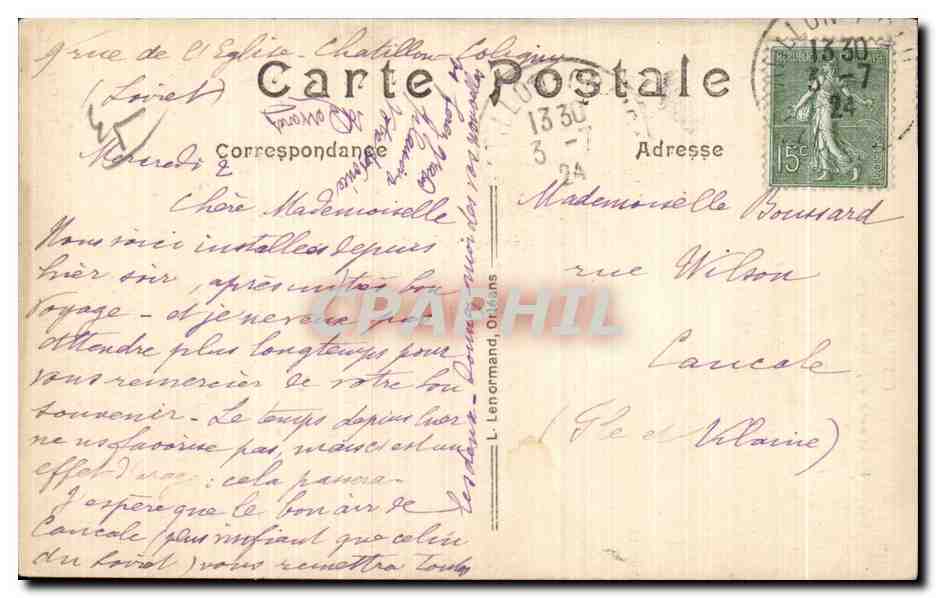 9 rue de l'Eglise - Chatillon-Coligny
(Loiret)
Carte Postale
45
Correspondance
Adresse
13 30
3 -7
24
13 30
3 -7
24
15c
Mercredi 2
Chère Mademoiselle
Nous voici installées depuis
hier soir, après un très bon
voyage - et je ne veux pas
attendre plus longtemps pour
vous remercier de votre bon
souvenir - Le temps depuis hier
ne ns favorise pas, mais c'est un
effet d'orage : cela passera -
J'espère que le bon air de
Cancale (plus vivifiant que celui
du Loiret) vous remettra toutes
les deux - Donnez-moi des nouvelles
Mademoiselle Boussard
rue Wilson
Cancale
(Ille et Vilaine)
L. Lenormand, Orléans
CPAPHIL